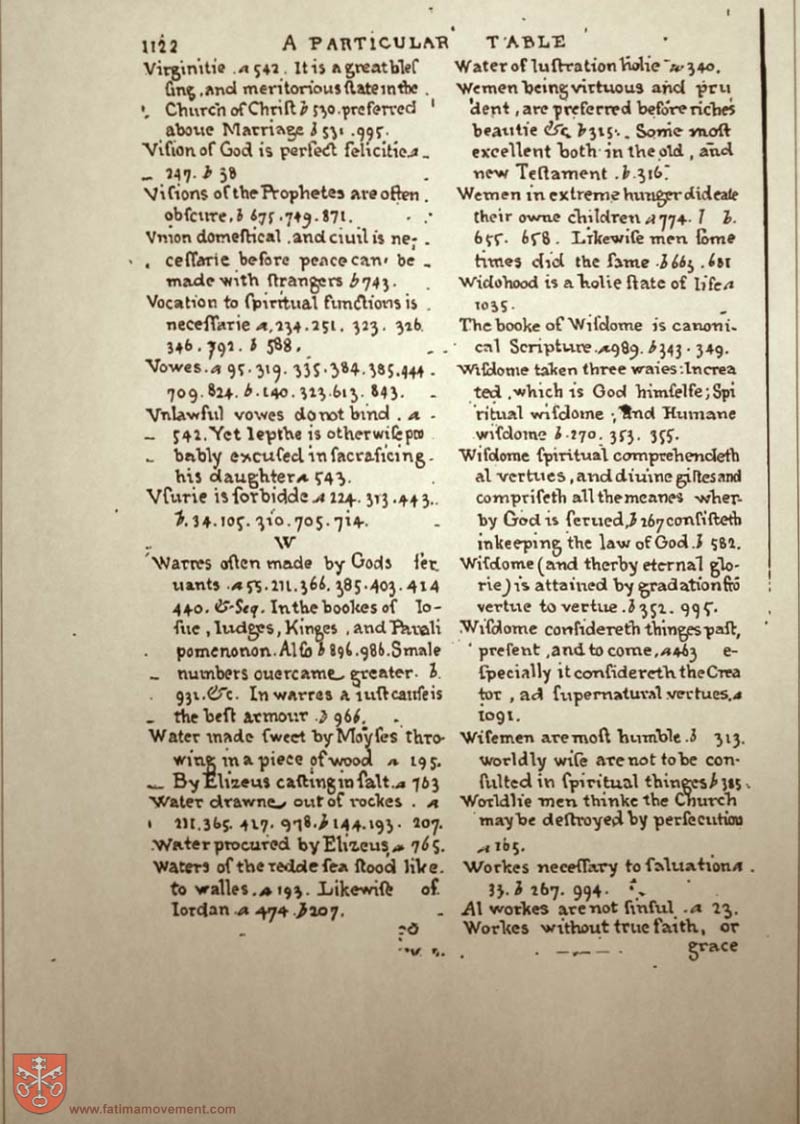 1122 A PARTICULAR TABLE
Virginitie . a 542 . It is a great bleſ
ſing , and meritorious ſtate in the
Church of Chriſt b 530 . preferred
aboue Marriage b 531 . 995 .
Viſion of God is perfect felicitie a
247 . b 38
Viſions of the Prophetes are often
obſcure , b 675 . 749 . 871 .
Vnion domeſtical , and ciuil is ne-
ceſſarie before peace can be
made with ſtrangers b 743 .
Vocation to ſpiritual functions is
neceſſarie a , 234 . 251 . 323 . 326 .
346 . 792 . b 588 .
Vowes . a 95 . 319 . 335 . 384 . 385 . 444 .
709 . 824 . b . 140 . 323 . 613 . 843 .
Vnlawful vowes do not bind . a
542 . Yet Iepthe is otherwiſe pro
bably excuſed in ſacraficing
his daughter a 543 .
Vſurie is forbidde a 224 . 313 . 443 .
b . 34 . 105 . 310 . 705 . 714 .
W
Warres often made by Gods ſer
uants . a 55 . 211 . 366 . 385 . 403 . 414
440 . &. Seq . In the bookes of Io-
ſue , Iudges , Kinges , and Parali
pomenonon . Alſo b 896 . 986 . Smale
numbers ouercame greater . b .
931 . &c . In warres a iuſt cauſe is
the beſt armour . b 966 .
Water made ſweet by Moyſes thro-
wing in a piece of wood a 195 .
By Elizeus caſting in ſalt . a 763
Water drawne out of rockes . a
211 . 365 . 417 . 978 . b 144 . 193 . 207 .
Water procured by Elizeus , a 765 .
Waters of the redde ſea ſtood like
to walles . a 193 . Likewiſe of
Iordan a 474 . b 207 .
Water of luſtration holie a 340 .
Wemen being virtuous and pru
dent , are preferred before riches
beautie &c b 315 . Some moſt
excellent both in the old , and
new Teſtament . b . 316 .
Wemen in extreme hunger did eate
their owne children a 774 . b .
655 . 658 . Likewiſe men ſome
times did the ſame . b 663 . 681
Widohood is a holie ſtate of life a
1035 .
The booke of Wiſdome is canoni-
cal Scripture . a 989 . b 343 . 349 .
Wiſdome taken three waies : Increa
ted , which is God himſelfe ; Spi
ritual wiſdome ; And Humane
wiſdome b . 270 . 353 . 355 .
Wiſdome ſpiritual comprehendeth
al vertues , and diuine giftes and
compriſeth all the meanes wher-
by God is ſerued , b 267 conſiſteth
in keeping the law of God . b 582 .
Wiſdome ( and therby eternal glo-
rie ) is attained by gradation frō
vertue to vertue . b 352 . 995 .
Wiſdome conſidereth thinges paſt ,
preſent , and to come , a 463 e-
ſpecially it conſidereth the Crea
tor , ad ſupernatural vertues . a
1091 .
Wiſemen are moſt humble . b 313 .
worldly wiſe are not to be con-
ſulted in ſpiritual thinges b 385 .
Worldlie men thinke the Church
may be deſtroyed by perſecution
a 165 .
Workes neceſſary to ſaluation a .
33 . b 267 . 994 .
Al workes are not ſinful . a 23 .
Workes without true faith , or
grace
www.fatimamovement.com